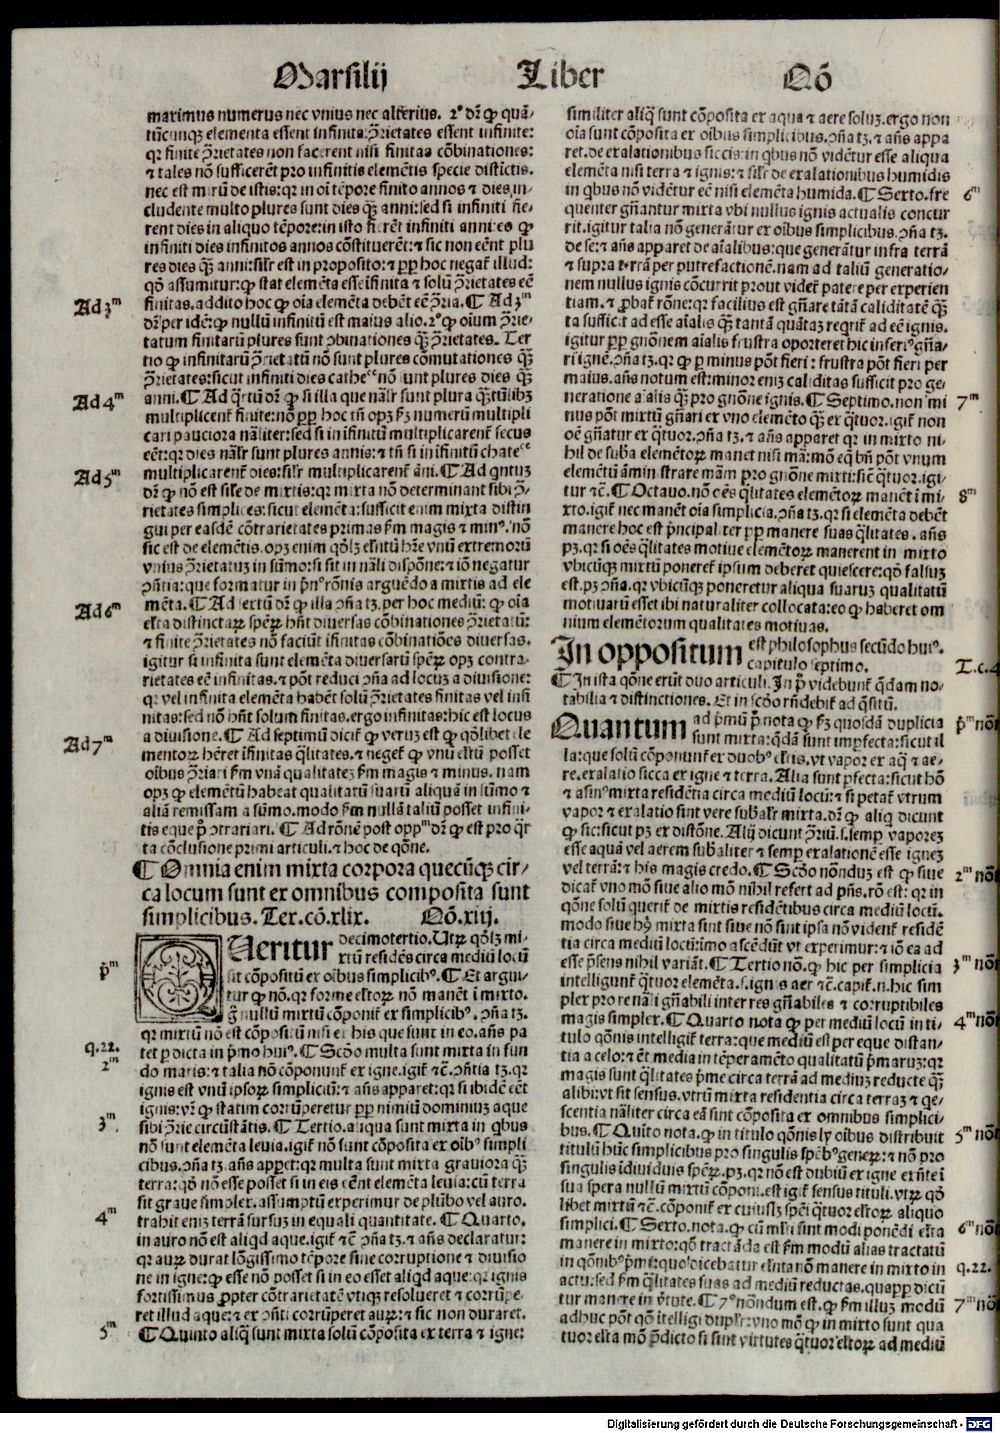 Marsilij Liber Qō
maximus numerus nec vnius nec alterius. 2º dr̄ ꝙ quā/
tūcunqꝫ elementa essent infinita: ꝯ̄rietates essent infinite:
qꝛ finite ꝯ̄rietates non facerent nisi finitas cōbinationes:
⁊ tales nō sufficerēt pro infinitis elemētis specie distictis.
nec est mirū de istis: qꝛ in oī tēpore finito annos ⁊ dies in/
cludente multo plures sunt dies qꝫ̄ anni: sed si infiniti fie/
rent dies in aliquo tēpore: in isto fierēt infiniti anni: eo ꝙ
infiniti dies infinitos annos cōstituerēt: ⁊ sic non eēnt plu
res dies qꝫ̄ anni: silr̄ est in proposito: ⁊ ꝓp̄ hoc negat̄ illud:
qō assumitur: ꝙ stat elemēta esse īfinita ⁊ solū ꝯ̄rietates eē
finitas. addito hoc ꝙ oīa elemēta debēt eē ꝯ̄ria. ¶ Ad 3ᵐ
dr̄ per idē: ꝙ nullū infinitū est maius alio. 2º ꝙ oīum ꝯ̄rie/
tatum finitarū plures sunt ꝯbinationes qꝫ̄ ꝯ̄rietates. Ter
tio ꝙ infinitarū ꝯ̄rietatū nō sunt plures cōmutationes qꝫ̄
ꝯ̄rietates: sicut infiniti dies cathe nō sunt plures dies qꝫ̄
anni. ¶ Ad q̄rtū dr̄ ꝙ si illa que nālr̄ sunt plura q̄ꝫtūlibꝫ
multiplicent̄ finite: nō ꝓp̄ hoc tn̄ opꝫ ꝙ fꝫ numerū multipli
cari pauciora nāliter: sed si in īfinitū multiplicarent̄ secus
eēt: qꝛ dies nālr̄ sunt plures annis: ⁊ tn̄ si in īfinitū chate
multiplicarent̄ dies: silr̄ multiplicarent̄ āni. ¶ Ad qntuꝫ
dr̄ ꝙ nō est sile de mixtis: qꝛ mixta nō determinant sibi ꝯ̄/
rietates simplices: sicut elemēta: sufficit enim mixta distin
gui per easdē cōtrarietates primas fm̄ magis ⁊ minꝰ. nō
sic est de elemētis. opꝫ enim qōlꝫ elītū hr̄e vnū extremorū
vnius ꝯ̄rietatuꝫ in sūmo: si sit in nāli dispōne: ⁊ iō negatur
ꝯn̄tia: que formatur in p̄nᵒ rōnis arguēdo a mixtis ad ele
mēta. ¶ Ad sextū dr̄ ꝙ illa ꝯn̄a tꝫ. per hoc mediū: ꝙ oīa
el̄ta distinctaꝝ spērꝝ hn̄t diuersas cōbinationes ꝯ̄rietatū:
⁊ finite ꝯ̄rietates nō faciūt īfinitas cōbinatiōes diuersas.
igitur si infinita sunt elemēta diuersarū spērꝝ opꝫ contra/
rietates eē infinitas. ⁊ pōt reduci ꝯn̄a ad locuꝫ a diuisione:
qꝛ vel infinita elemēta habēt solū ꝯ̄rietates finitas vel infi
nitas: sed nō hn̄t solum finitas. ergo infinitas: hic est locus
a diuisione. ¶ Ad septimū dicit̄ ꝙ veruꝫ est ꝙ qōlibet ele
mentoꝝ hēret īfinitas q̄litates. ⁊ neget̄ ꝙ vnū el̄tū posset
oibus ꝯ̄riari fm̄ vnā qualitateꝫ fm̄ magis ⁊ minus. nam
opꝫ ꝙ elemētū habeat qualitatū suarū aliquā in sūmo ⁊
aliā remissam a sūmo. modo fm̄ nullā taliū posset infini/
tis eque p̄ ꝯtrariari. ¶ Ad rōnē post oppᵐ dr̄ ꝙ est pro q̄r
ta cōclusione primi articuli. ⁊ hoc de qōne.
¶ Omnia enim mixta corpora quecūqꝫ cir/
ca locum sunt ex omnibus composita sunt
simplicibus. Ter. cō. xlix. Qō. xiij.
Queritur decimotertio. Utꝝ qōlꝫ mi/
xtū residēs circa mediū locū
sit cōpositū ex oibus simplicibꝰ. ¶ Et argui/
tur ꝙ nō. qꝛ forme el̄toꝝ nō manēt ī mixto.
g̊ nullū mixtū cōponit̄ ex simplicibꝰ. ꝯn̄a tꝫ.
qꝛ mixtū nō est cōpositū nisi ex his que sunt in eo. an̄s pa
tet p̄dicta in p̄mo huiꝰ. ¶ Scd̄o multa sunt mixta in fun
do maris: ⁊ talia nō cōponunt̄ ex igne. igit̄ ⁊c̄. ꝯn̄tia tꝫ. qꝛ
ignis est vnū ipsoꝝ simpliciū: ⁊ an̄s apparet: qꝛ si ibidē eēt
ignis: vr̄ ꝙ statim corrūperetur ꝓp̄ nimiū dominiuꝫ aque
sibi ꝯ̄rie circūstātis. ¶ Tertio. aliqua sunt mixta in qbus
nō sunt elemēta leuia. igit̄ nō sunt cōposita ex oibꝰ simpli
cibus. ꝯn̄a tꝫ. an̄s appet: qꝛ multa sunt mixta grauiora qꝫ̄
terra: qō nō esse posset si in eis eēnt elemēta leuia: cū terra
sit graue simpler. assumptū experimur de plūbo vel auro.
trahit eniꝫ terrā sursuꝫ in equali quantitate. ¶ Quarto.
in auro nō est aliqd aque. igit̄ ⁊c̄ ꝯn̄a tꝫ. ⁊ an̄s declaratur:
qꝛ auꝝ durat lōgissimo tēpore sine corruptione ⁊ diuisio
ne in igne: ꝙ esse nō posset si in eo esset aliqd aque: qꝛ ignis
fortissimus ꝓpter cōtrarietatē vtiqꝫ resolueret ⁊ corrūpe/
ret illud aque: ⁊ ex ꝯn̄ti corrūperet auꝝ: ⁊ sic non duraret.
¶ Quinto aliq̄ sunt mixta solū cōposita ex terra ⁊ igne:
Ad 3ᵐ
Ad 4ᵐ
Ad 5ᵐ
Ad 6ᵐ
Ad 7ᵐ
p̄ᵐ
q. 22.
2ᵐ
3ᵐ.
4ᵐ
5ᵐ
similiter aliq̄ sunt cōposita ex aqua ⁊ aere soluꝫ. ergo non
oīa sunt cōposita ex oibus simplicibus. ꝯn̄a tꝫ. ⁊ an̄s appa
ret. de exalationibus siccis: in qbus nō vidētur esse aliqua
elemēta nisi terra ⁊ ignis: ⁊ silr̄ de exalationibus humidis
in qbus nō vidētur eē nisi elemēta humida. ¶ Sexto. fre
quenter gn̄antur mixta vbi nullus ignis actualis concur
rit. igitur talia nō generātur ex oibus simplicibus. ꝯn̄a tꝫ.
de se: ⁊ an̄s apparet de aīalibus: que generātur infra terrā
⁊ supra terrā per putrefactionē. nam ad taliū generatio/
nem nullus ignis cōcurrit prout videt̄ patere per experien
tiam. ⁊ ꝓbat̄ rōne: qꝛ facilius est gn̄are tātā caliditatē qꝫ̄
ta sufficit ad esse aīalis qꝫ̄ tantā quātaꝫ requirit̄ ad eē ignis.
igitur ꝓp̄ gnōnem aīalis frustra oporteret hic inferiꝰ gn̄a/
ri ignē. ꝯn̄a tꝫ. qꝛ ꝙ p minus pōt fieri: frustra pōt fieri per
maius. an̄s notum est: minor eniꝫ caliditas sufficit pro ge/
neratione aīalis qꝫ̄ pro gnōne ignis. ¶ Septimo. non mi
nus pōt mixtū gn̄ari ex vno elemēto qꝫ̄ ex q̄tuor. igit̄ non
oē gn̄atur ex q̄tuor. ꝯn̄a tꝫ. ⁊ an̄s apparet qꝛ in mixto ni/
hil de suba elemētoꝝ manet nisi mā: mō eq̄ bn̄ pōt vnum
elemētū āministrare mām pro gnōne mixti: sic q̄tuor. igi/
tur ⁊c̄. ¶ Octauo. nō oēs q̄litates elemētoꝝ manēt ī mi/
xto. igit̄ nec manēt oīa simplicia. ꝯn̄a tꝫ. qꝛ si elemēta debēt
manere hoc est p̄ncipaliter ꝓp̄ manere suas q̄litates. an̄s
pꝫ. qꝛ si oēs q̄litates motiue elemētoꝝ manerent in mixto
vbicūqꝫ mixtū poneret̄ ipsum deberet quiescere: qō falsuꝫ
est. pꝫ ꝯn̄a. qꝛ vbicūqꝫ poneretur aliqua suaruꝫ qualitatū
motiuarū esset ibi naturaliter collocata: eo ꝙ haberet om
nium elementorum qualitates motiuas.
In oppositum est philosophus secūdo huiꝰ.
capitulo septimo.
¶ In ista qōne erūt duo articuli. In p̄ videbunt̄ q̄dam no/
tabilia ⁊ distinctiones. Et in scd̄o rn̄debit̄ ad q̄sitū.
Quantum ad p̄mū p̄ nota ꝙ fꝫ quosdā duplicia
sunt mixta: q̄dā sunt imꝑfecta: sicut il
la: que solū cōponunt̄ ex duobꝰ el̄tis. vt vapor ex aq̄ ⁊ ae/
re. exalatio sicca ex igne ⁊ terra. Alia sunt ꝑfecta: sicut hō
⁊ asinꝰ mixta residētia circa mediū locū: ⁊ si petat̄ vtrum
vapor ⁊ exalatio sint vere subalr̄ mixta. dr̄ ꝙ aliq dicunt
ꝙ sic: sicut pꝫ ex distōne. Alij dicunt ꝯ̄riū. s. semp̄ vaporeꝫ
esse aquā vel aerem subaliter ⁊ semp̄ exalationē esse igneꝫ
vel terrā: ⁊ his magis credo. ¶ Scd̄o nōnduꝫ est ꝙ siue
dicat̄ vno mō siue alio mō nihil refert ad pn̄s. rō est: qꝛ in
qōne solū querit̄ de mixtis residētibus circa mediū locū.
modo siue hꝰ mixta sint siue nō sint ipsa nō vident̄ residē
tia circa mediū locū: īmo ascēdūt vt experimur: ⁊ iō ea ad
esse p̄sens nihil variāt. ¶ Tertio nō. ꝙ hic per simplicia
intelligunt̄ q̄tuor elemēta. s. ignis aer ⁊c̄. capit̄. n. hic sim
plex pro re nō īgn̄abili inter res gn̄abiles ⁊ corruptibiles
magis simplex. ¶ Quarto nota ꝙ per mediū locū in ti/
tulo qōnis intelligit̄ terra: que mediū est per eque distan/
tia a celo: ⁊ ēt media in tēperamēto qualitatū p̄maruꝫ: qꝛ
magis sunt q̄litates p̄me circa terrā ad mediuꝫ reducte qꝫ̄
alibi: vt sit sensus. vtrū mixta residentia circa terraꝫ ⁊ qe/
scentia nāliter circa eā sint cōposita ex omnibus simplici/
bus. ¶ Quīto nota. ꝙ in titulo qōnis ly oibus distribuit
titulū hūc simplicibus pro singulis spēbꝰ geneꝝ: ⁊ nō pro
singulis īdiuiduis spēꝝ. pꝫ. qꝛ nō est dubiū ex igne exn̄te ī
sua spera nullū mixtū cōponi. est igit̄ sensus tituli. vtꝝ qō
libet mixtū ⁊c̄. cōponit̄ ex cuiuslꝫ spēi q̄tuor el̄toꝝ aliquo
simplici. ¶ Sexto. nota. ꝙ cū mlti sint modi ponēdi el̄ta
manere in mixto: qō tractādū est fm̄ modū alias tractatū
in qōnibꝰ p̄mi: quo dicebatur el̄mta nō manere in mixto in
actu: sed fm̄ q̄litates suas ad mediū reductas. quapp dicū
tur manere in v̄tute. ¶ 7º nōndum est. ꝙ fm̄ illuꝫ modū
adhuc pōt qō ītelligi duplr̄: vno mō ꝙ in mixto sunt qua
tuor el̄ta mō p̄dicto si sint virtutes q̄tuor el̄toꝝ ad mediū
6ᵐ
7ᵐ
8ᵐ
T. c. 4
p̄ᵐ nō
2ᵐ nō
3ᵐ nō
4ᵐ nō
5ᵐ nō
6ᵐ nō
q. 22.
7ᵐ nō
Digitalisierung gefördert durch die Deutsche Forschungsgemeinschaft - DFG